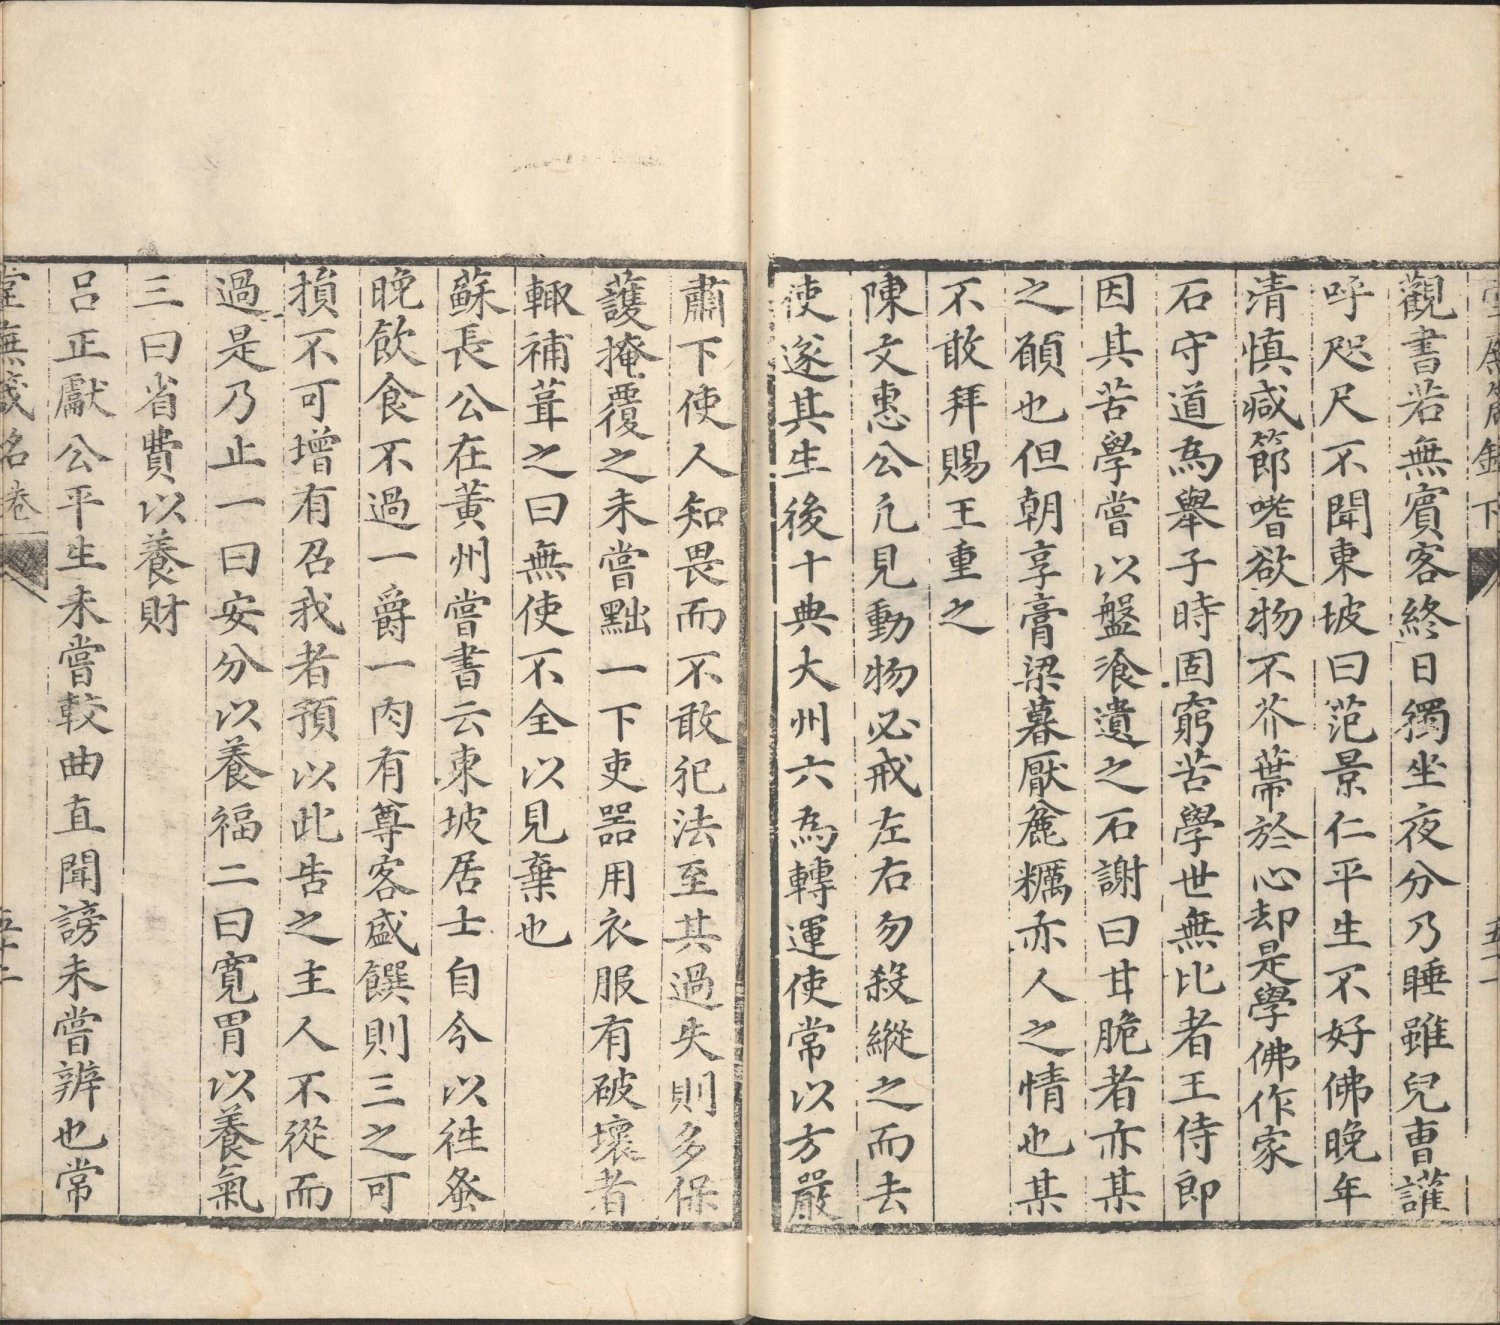 觀書若無賓客終日獨坐夜分乃睡雖兒曹讙
呼咫尺不聞東坡曰范景仁平生不好佛晚年
清慎减節嗜欲物不芥蔕於心却是學佛作家
石守道為舉子時固窮苦學世無比者王侍郎
因其苦學嘗以盤飡遺之石謝曰甘脆者亦某
之願也但朝享膏粱暮厭麄糲亦人之情也某
不敢拜賜王重之
陳文惠公凢見動物必戒左右勿殺縱之而去
使遂其生後十典大州六為轉運使常以方嚴
肅下使人知畏而不敢犯法至其過失則多保
護掩覆之未嘗黜一下吏器用衣服有破壞者
輙補葺之曰無使不全以見棄也
蘇長公在黃州嘗書云東坡居士自今以徃蚤
晚飲食不過一爵一肉有尊客盛饌則三之可
損不可增有召我者預以此告之主人不從而
過是乃止一曰安分以養福二曰寬胃以養氣
三曰省費以養財
呂正獻公平生未嘗較曲直聞謗未嘗辨也常